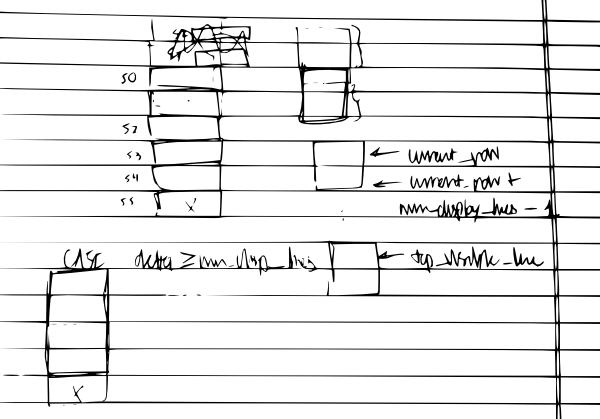 50
52
53
54
55
X
current_row
current_row +
num_display_lines - 1
CASE delta ≥ num_disp_lines
top_visible_line
X